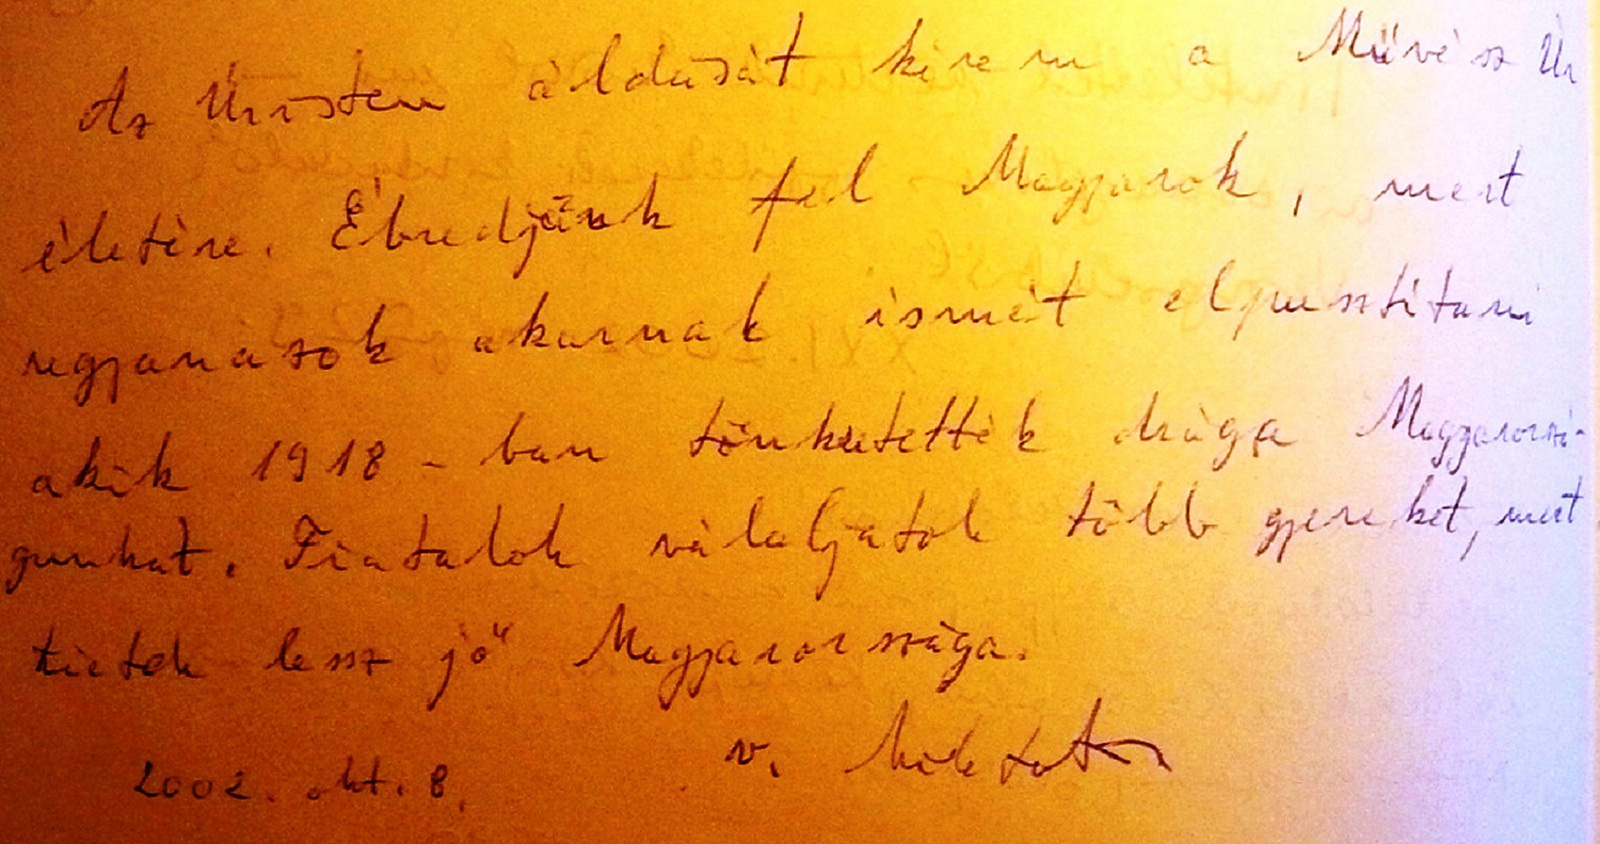 Az Úristen áldását kérem a Müvész Úr
életére. Ébredjünk fel Magyarok, mert
ugyanazok akarnak ismét elpusztitani
akik 1918-ban tönkretették drága Magyarorszá-
gunkat. Fiatalok válaljatok több gyereket, mert
tietek lessz jö" Magyarország.
2002. okt. 8. v.